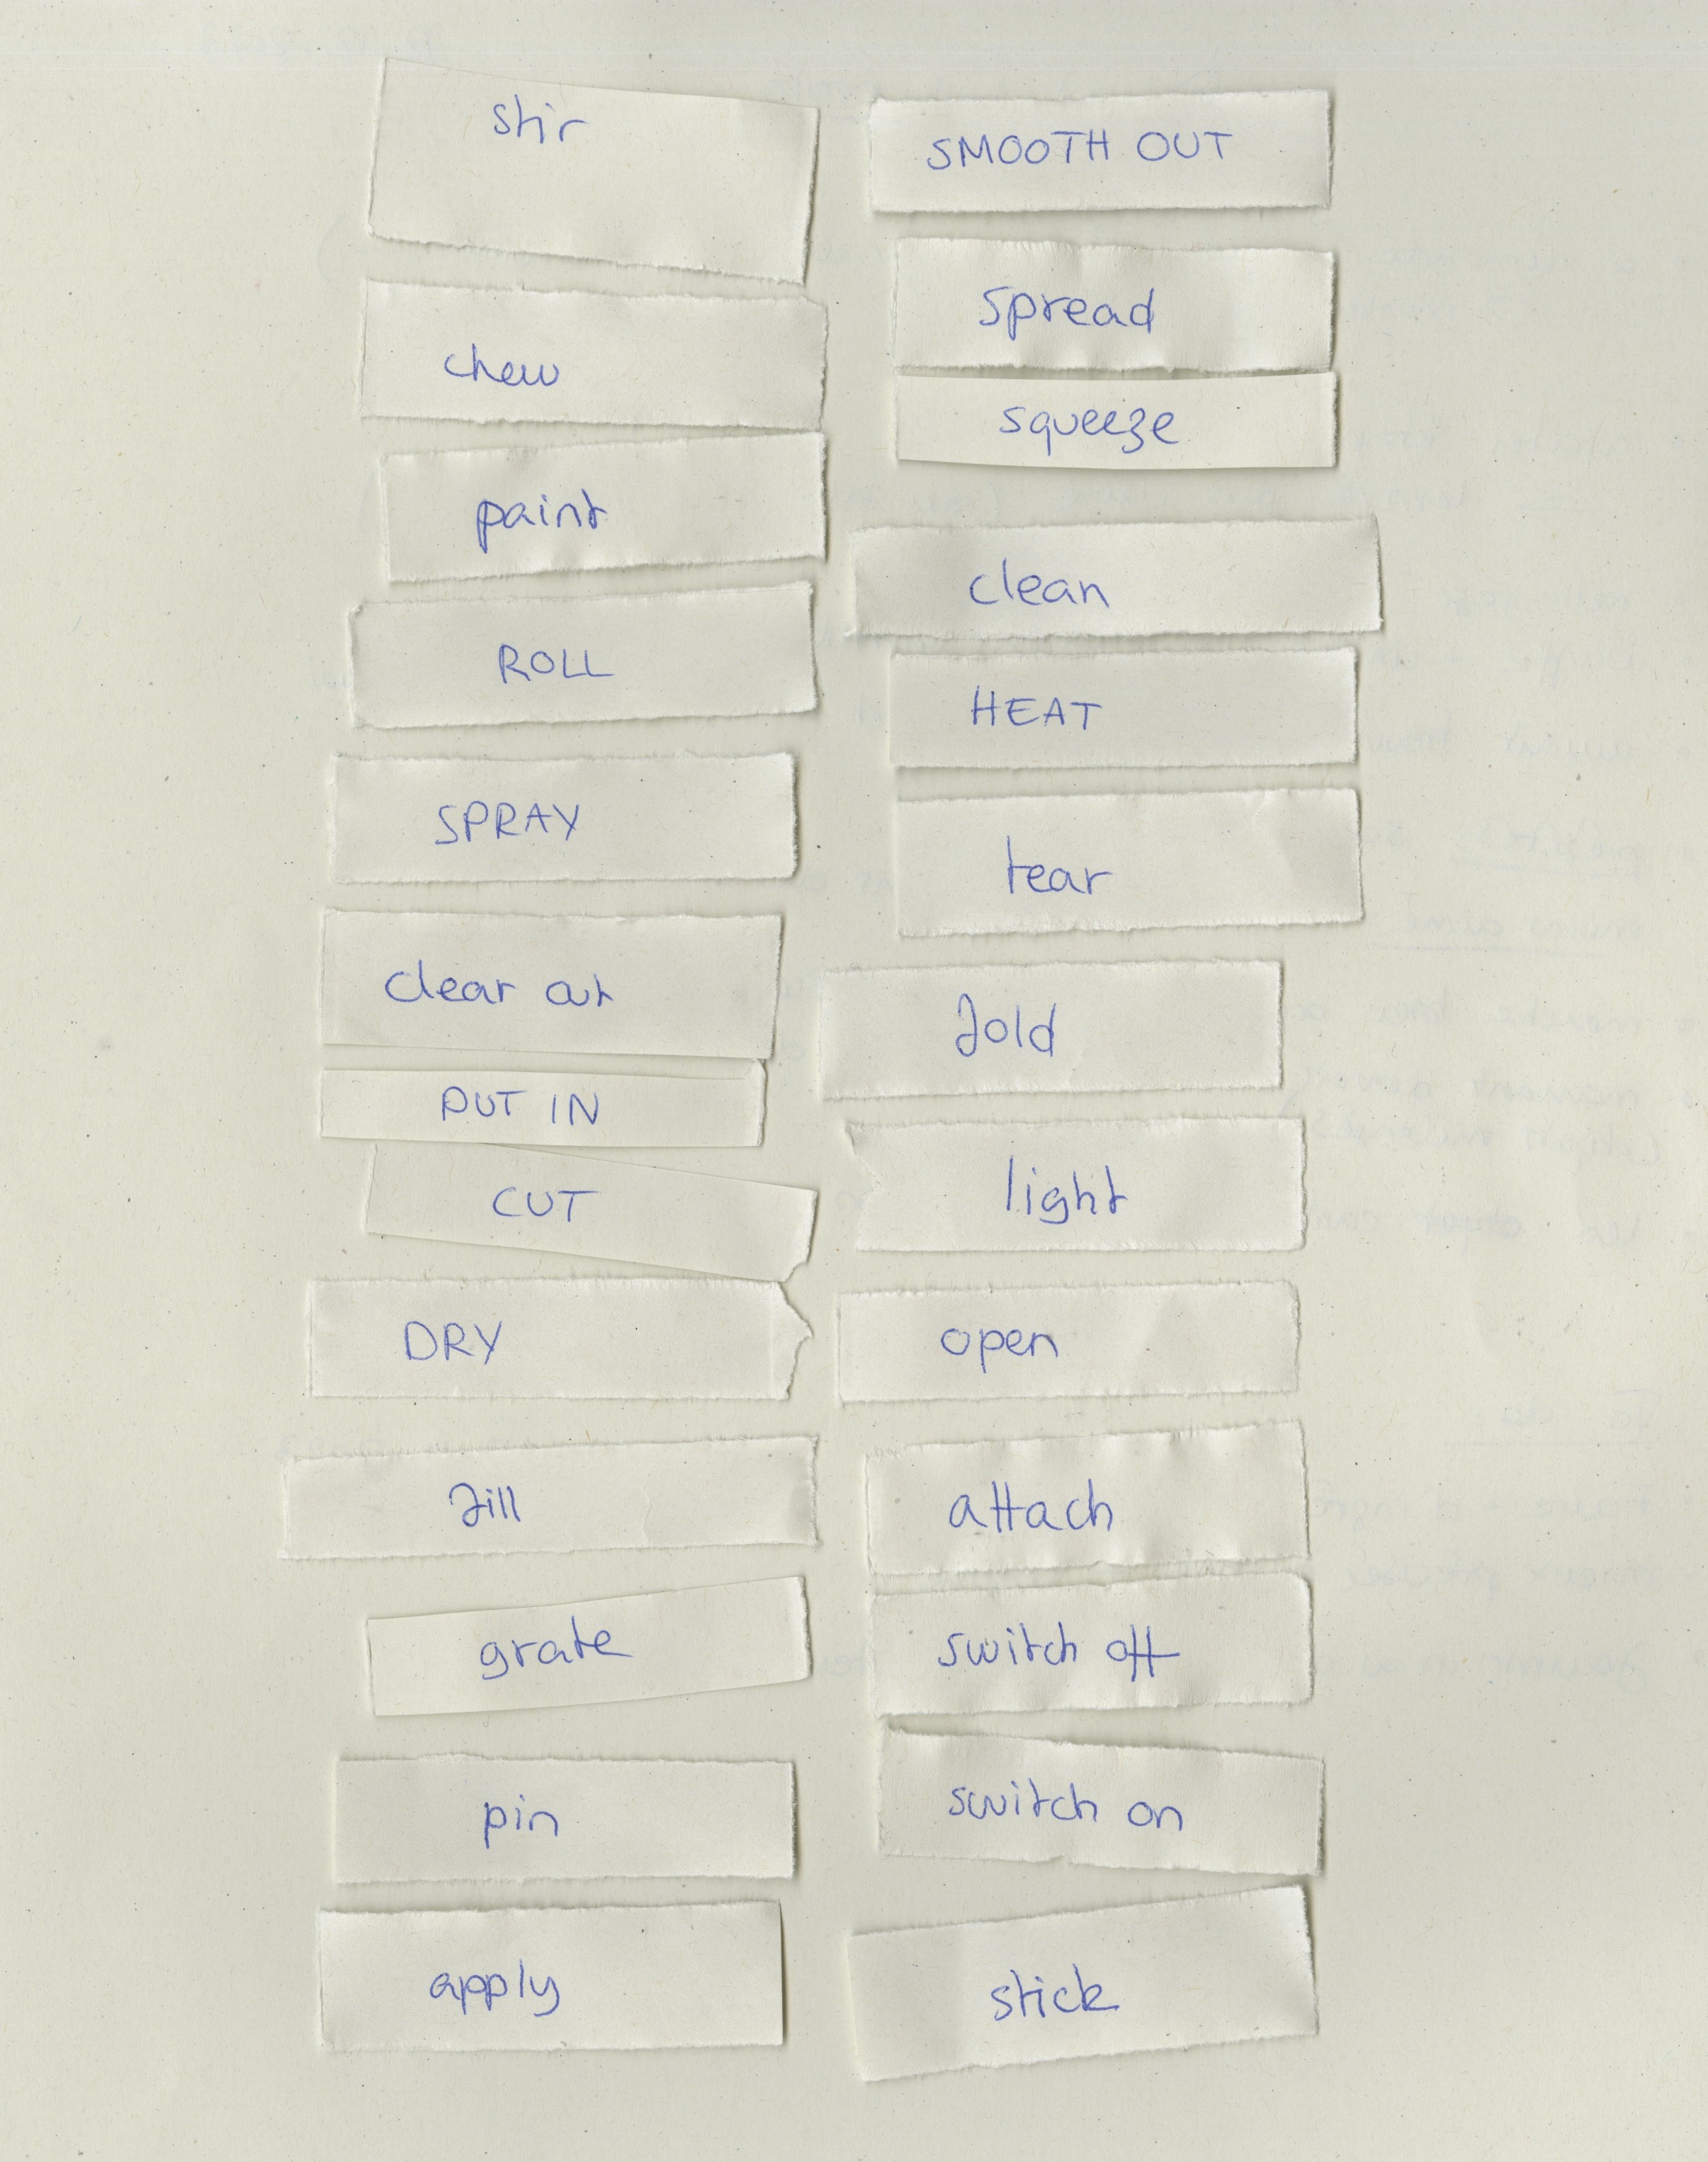 stir
chew
paint
ROLL
SPRAY
clear out
PUT IN
CUT
DRY
fill
grate
pin
apply
SMOOTH OUT
spread
squeeze
clean
HEAT
tear
fold
light
open
attach
switch off
switch on
stick